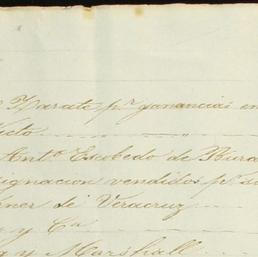 Zarate pr ganancias en
Anto Escobedo de Dura
ignacion vendidos pr su
ner de Veracruz
y Ca
y Marshall